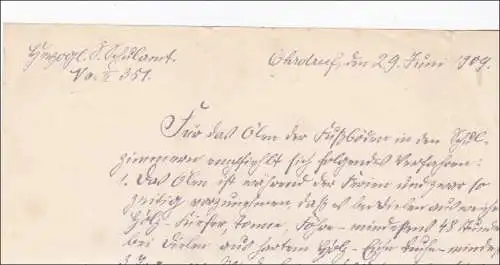 Herzogl. S. Schulamt.
No. II 351.
Ohrdruf, den 29. Juni 1909.
Für das Ölen der Fußböden in den Schul-
zimmern empfiehlt sich folgendes Verfahren:
1. Das Ölen ist während der Ferien und zwar so
zeitig vorzunehmen, daß es bei Dielen aus weichem
Holz - Kiefer, Tanne, Föhre - mindestens 48 Stunden
bei Dielen aus hartem Holz - Eiche, Buche - mindes